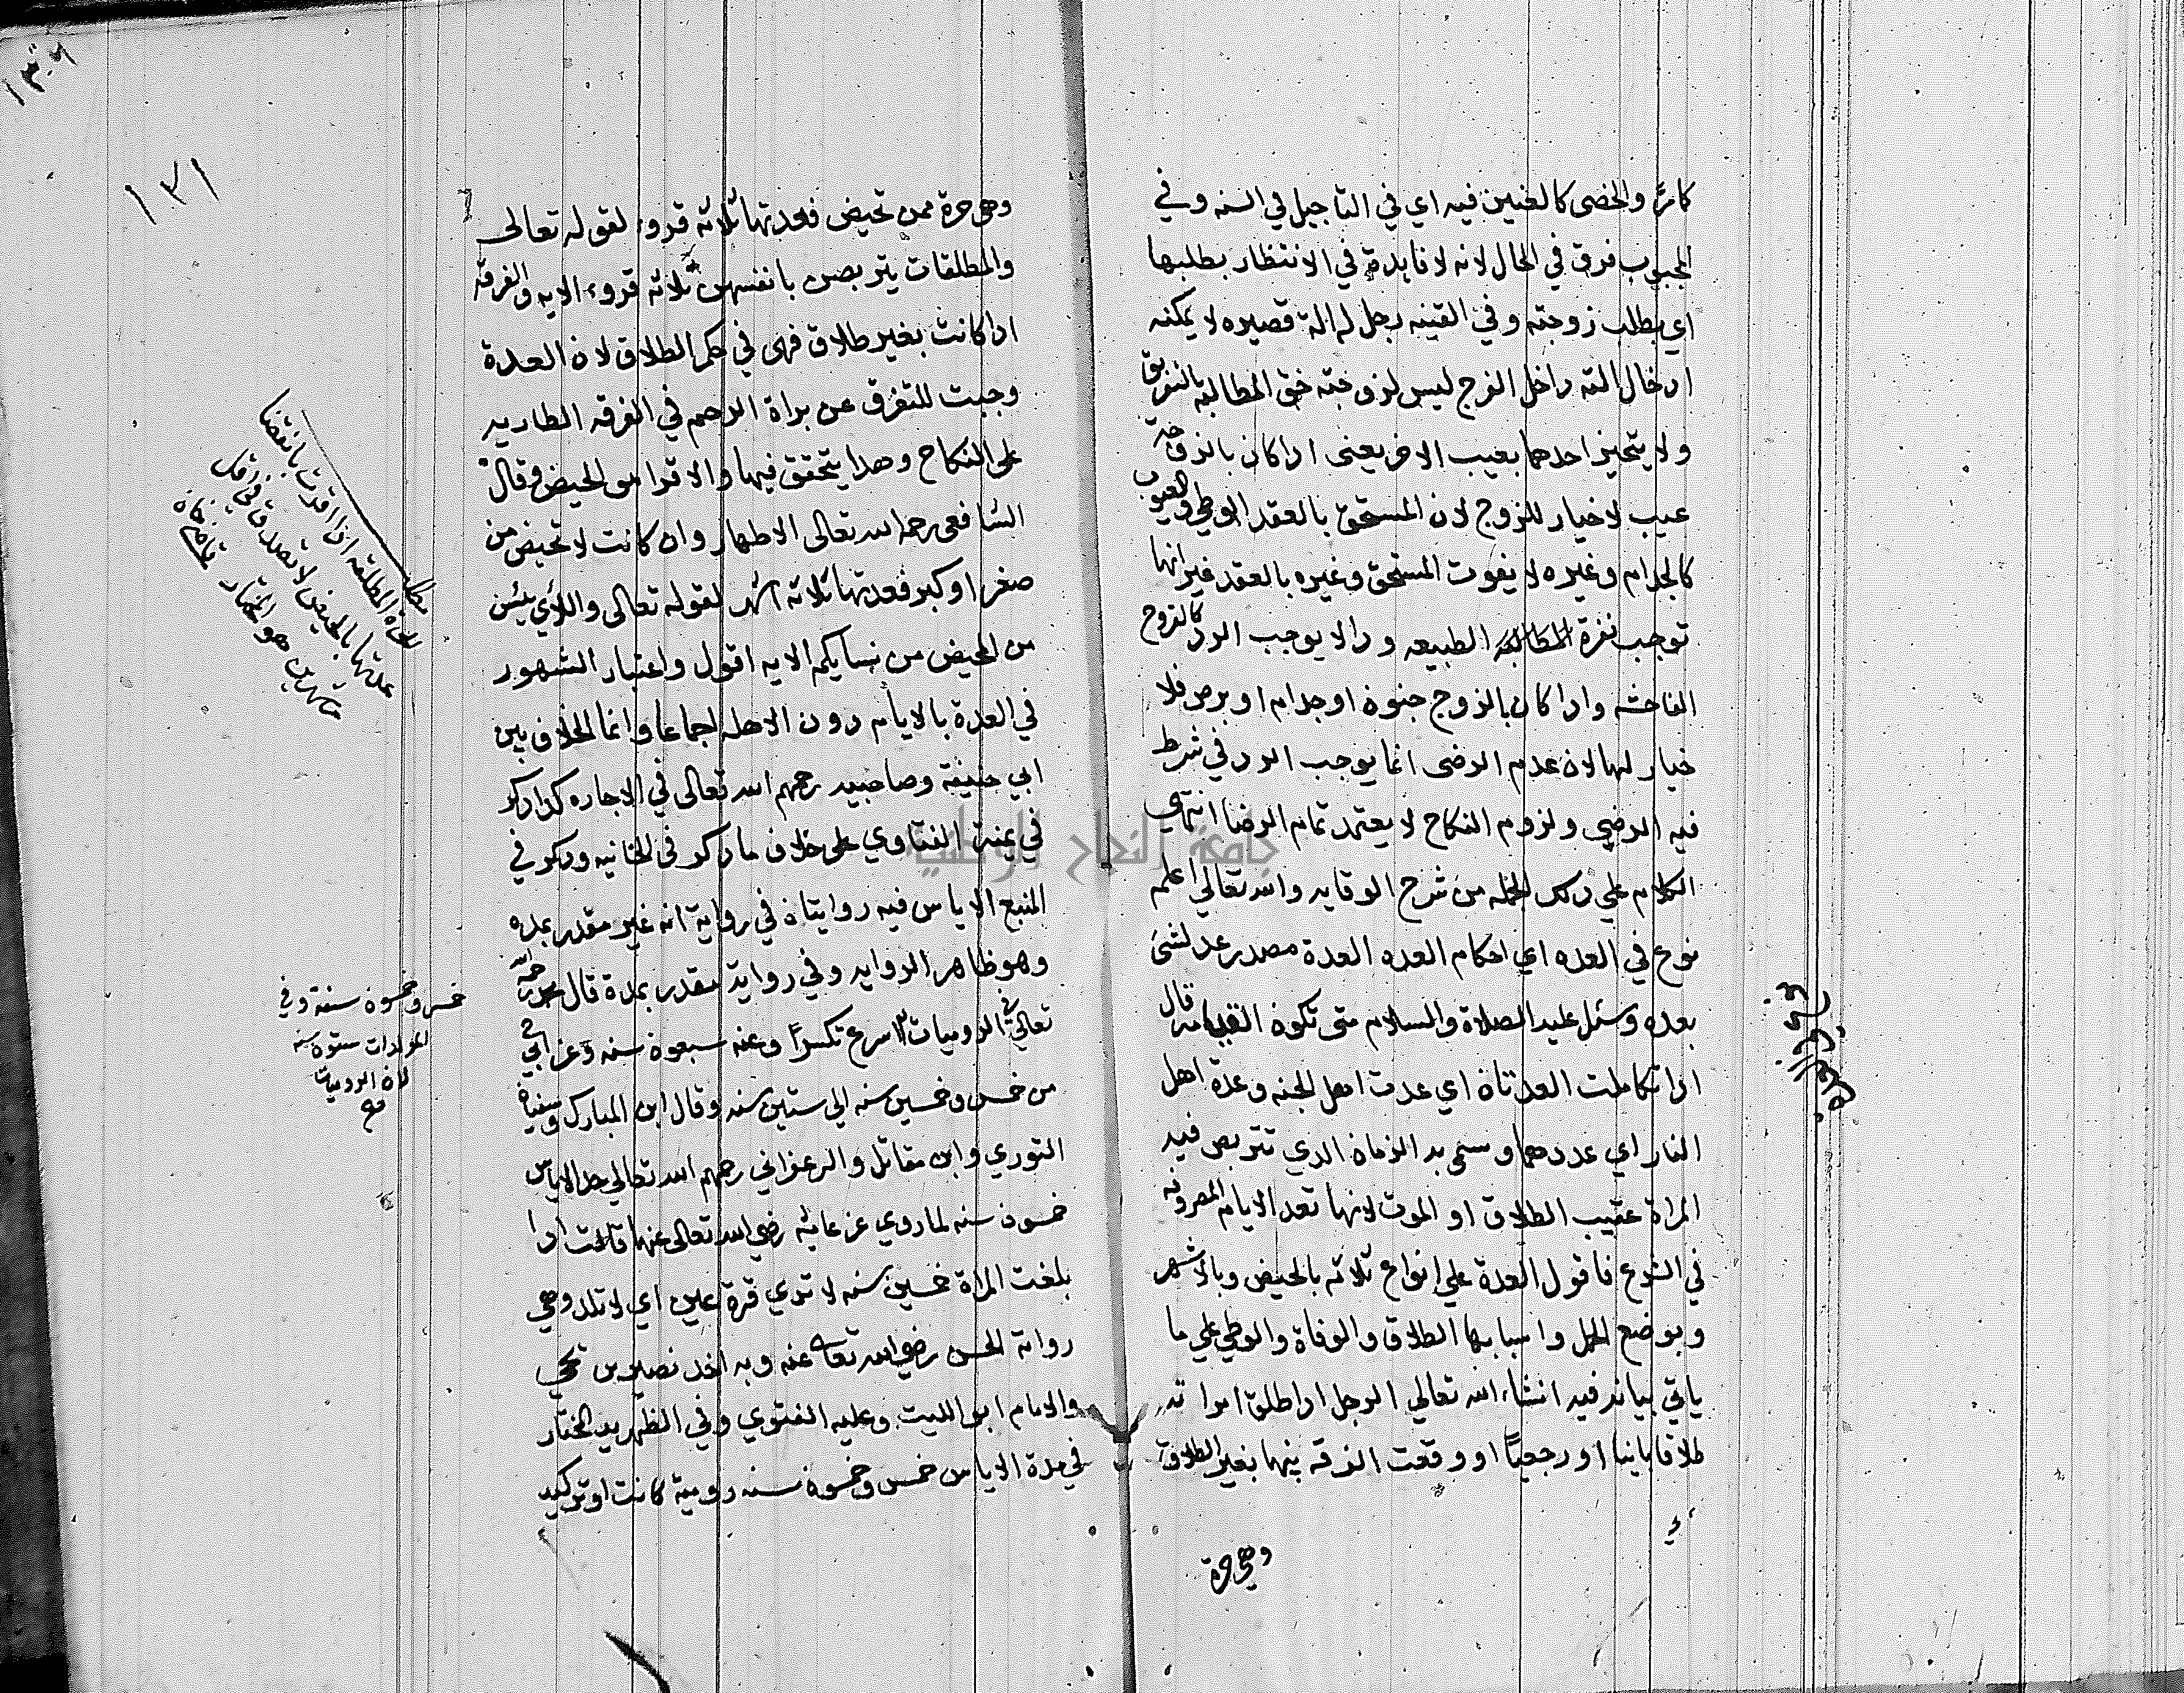 كامر والخصى كالعنين فيه اي في التاجيل في السنه وفي
المجبوب فرق في الحال لانه لا فايدة في الانتظار بطلبها
اي بطلب زوجته وفي القنيه رجل له الة قصيره لا يمكنه
ادخال الته داخل الفرج ليس لزوجته حق المطالبه بالتفريق
ولا يتخير احدهما بعيب الاخر يعنى ادا كان بالزوجة
عيب لا خيار للزوج لان المستحق بالعقد الوطي والعيوب
كالجدام وغيره لا يفوت المستحق وغيره بالعقد غير انها
توجب نفرة الطبيعه ودا لا يوجب الرد كالقروح
الفاحشه وادا كان بالزوج جنون او جدام او برص فلا
خيار لها لان عدم الرضى انما يوجب الرد في شرط
فيه الرضي ولزوم النكاح لا يعتمد تمام الرضا انتهي
الكلام علي دلك الجمله من شرح الوقايه والله تعالي اعلم
نوع في العده اي احكام العده العدة مصدر عد لشئ
بعده وسئل عليه الصلاة والسلام متى تكون القيامه قال
ادا تكاملت العدتان اي عدت اهل الجنه وعدة اهل
النار اي عددهما وسمى به الزمان الدي تتربص فيه
المراة عقيب الطلاق او الموت لانها تعد الايام المعروفه
في الشرع فاقول العدة علي انواع ثلاثه بالحيض وبالاشهر
وبوضع الحمل واسبابها الطلاق والوفاة والوطي علي ما
ياتي بيانه فيه انشاء الله تعالي الرجل ادا طلق امراته
طلاقا باينا او رجعيا او وقعت الفرقه بينهما بغير الطلاق
وهي حرة
١٣١
وهي حرة ممن تحيض فعدتها ثلاثه قروء لقوله تعالى
والمطلقات يتربصن بانفسهن ثلاثه قروء الايه والفرقة
ادا كانت بغير طلاق فهي في حكم الطلاق لان العدة
وجبت للتعرف عن براة الرحم في الفرقه الطاريه
على النكاح وهدا يتحقق فيها والاقرا هى الحيض وقال
الشافعى رحمه الله تعالى الاطهار وان كانت لا تحيض من
صغر او كبر فعدتها ثلاثه اشهر لقوله تعالى واللأي يئسن
من المحيض من نسايكم الايه اقول واعتبار الشهور
في العدة بالايام دون الاهله اجماعا وانما الخلاف بين
ابي حنيفة وصاحبيه رحمهم الله تعالى في الاجاره كدا دكر
في يتمية الفتاوي على خلاف ما دكر فى الخانيه ودكر في
المنبع الاياس فيه روايتان في رواية انه غير مقدر بمده
وهو ظاهر الروايه وفي رواية مقدر بمدة قال محمد رحمه الله
تعالي في الروميات اسرع تكسرا وعنه سبعون سنه وعن ابي
من خمس وخمسين سنه الي ستين سنه وقال ابن المبارك وسفيان
التوري وابن مقاتل والزعفراني رحمهم الله تعالي حد الاياس
خمسون سنه لما روي عن عائشه رضي الله تعالى عنها قالت ادا
بلغت المراة خمسين سنه لا تري قرة عين اي لا تلد وهي
رواية الحسن رضي الله تعالى عنه وبه اخد نصير بن يحي
والامام ابو الليت وعليه الفتوي وفي الظهريه المختار
في مدة الاياس خمس وخمسون سنه رومية كانت او تركيه
مطلب
الحرة المطلقه اذا اقرت بانقضا
عدتها بالحيض لا تصدق في اقل
شهرين هو المختار
خمس وخمسون سنة وفي
المولدات ستون سنه
لان الروميات
صح